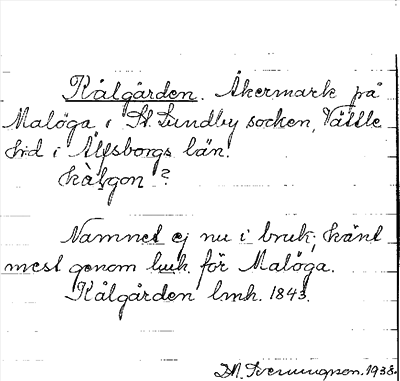 Kålgården. Åkermark på
Malöga i St. Lundby socken, Vättle
hd i Älfsborgs län.
kå̀lgon ?
Namnet ej nu i bruk; känt
mest genom lmk. för Malöga.
Kålgården lmk. 1843.
M. Svenungson. 1938.